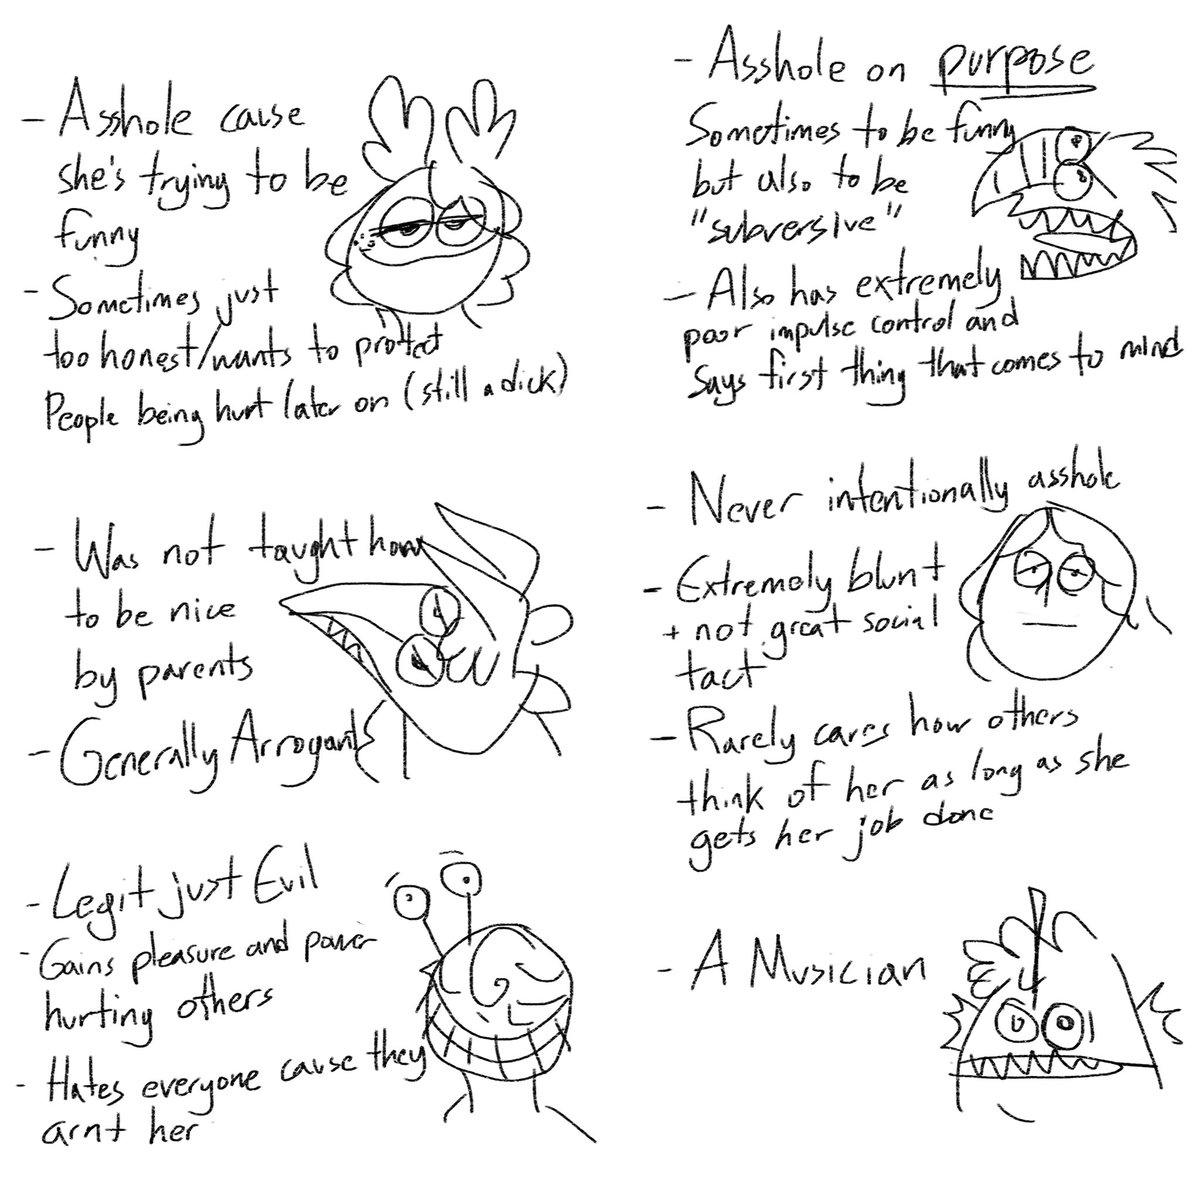 - Asshole cause
she's trying to be
funny
- Sometimes just
too honest/wants to protect
People being hurt later on (still a dick)
- Asshole on purpose
Sometimes to be funny
but also to be
"subversive"
- Also has extremely
poor impulse control and
Says first thing that comes to mind
- Was not taught how
to be nice
by parents
- Generally Arrogant
- Never intentionally asshole
- Extremely blunt
+ not great social
tact
- Rarely cares how others
think of her as long as she
gets her job done
- Legit just Evil
- Gains pleasure and power
hurting others
- Hates everyone cause they
arnt her
- A Musician